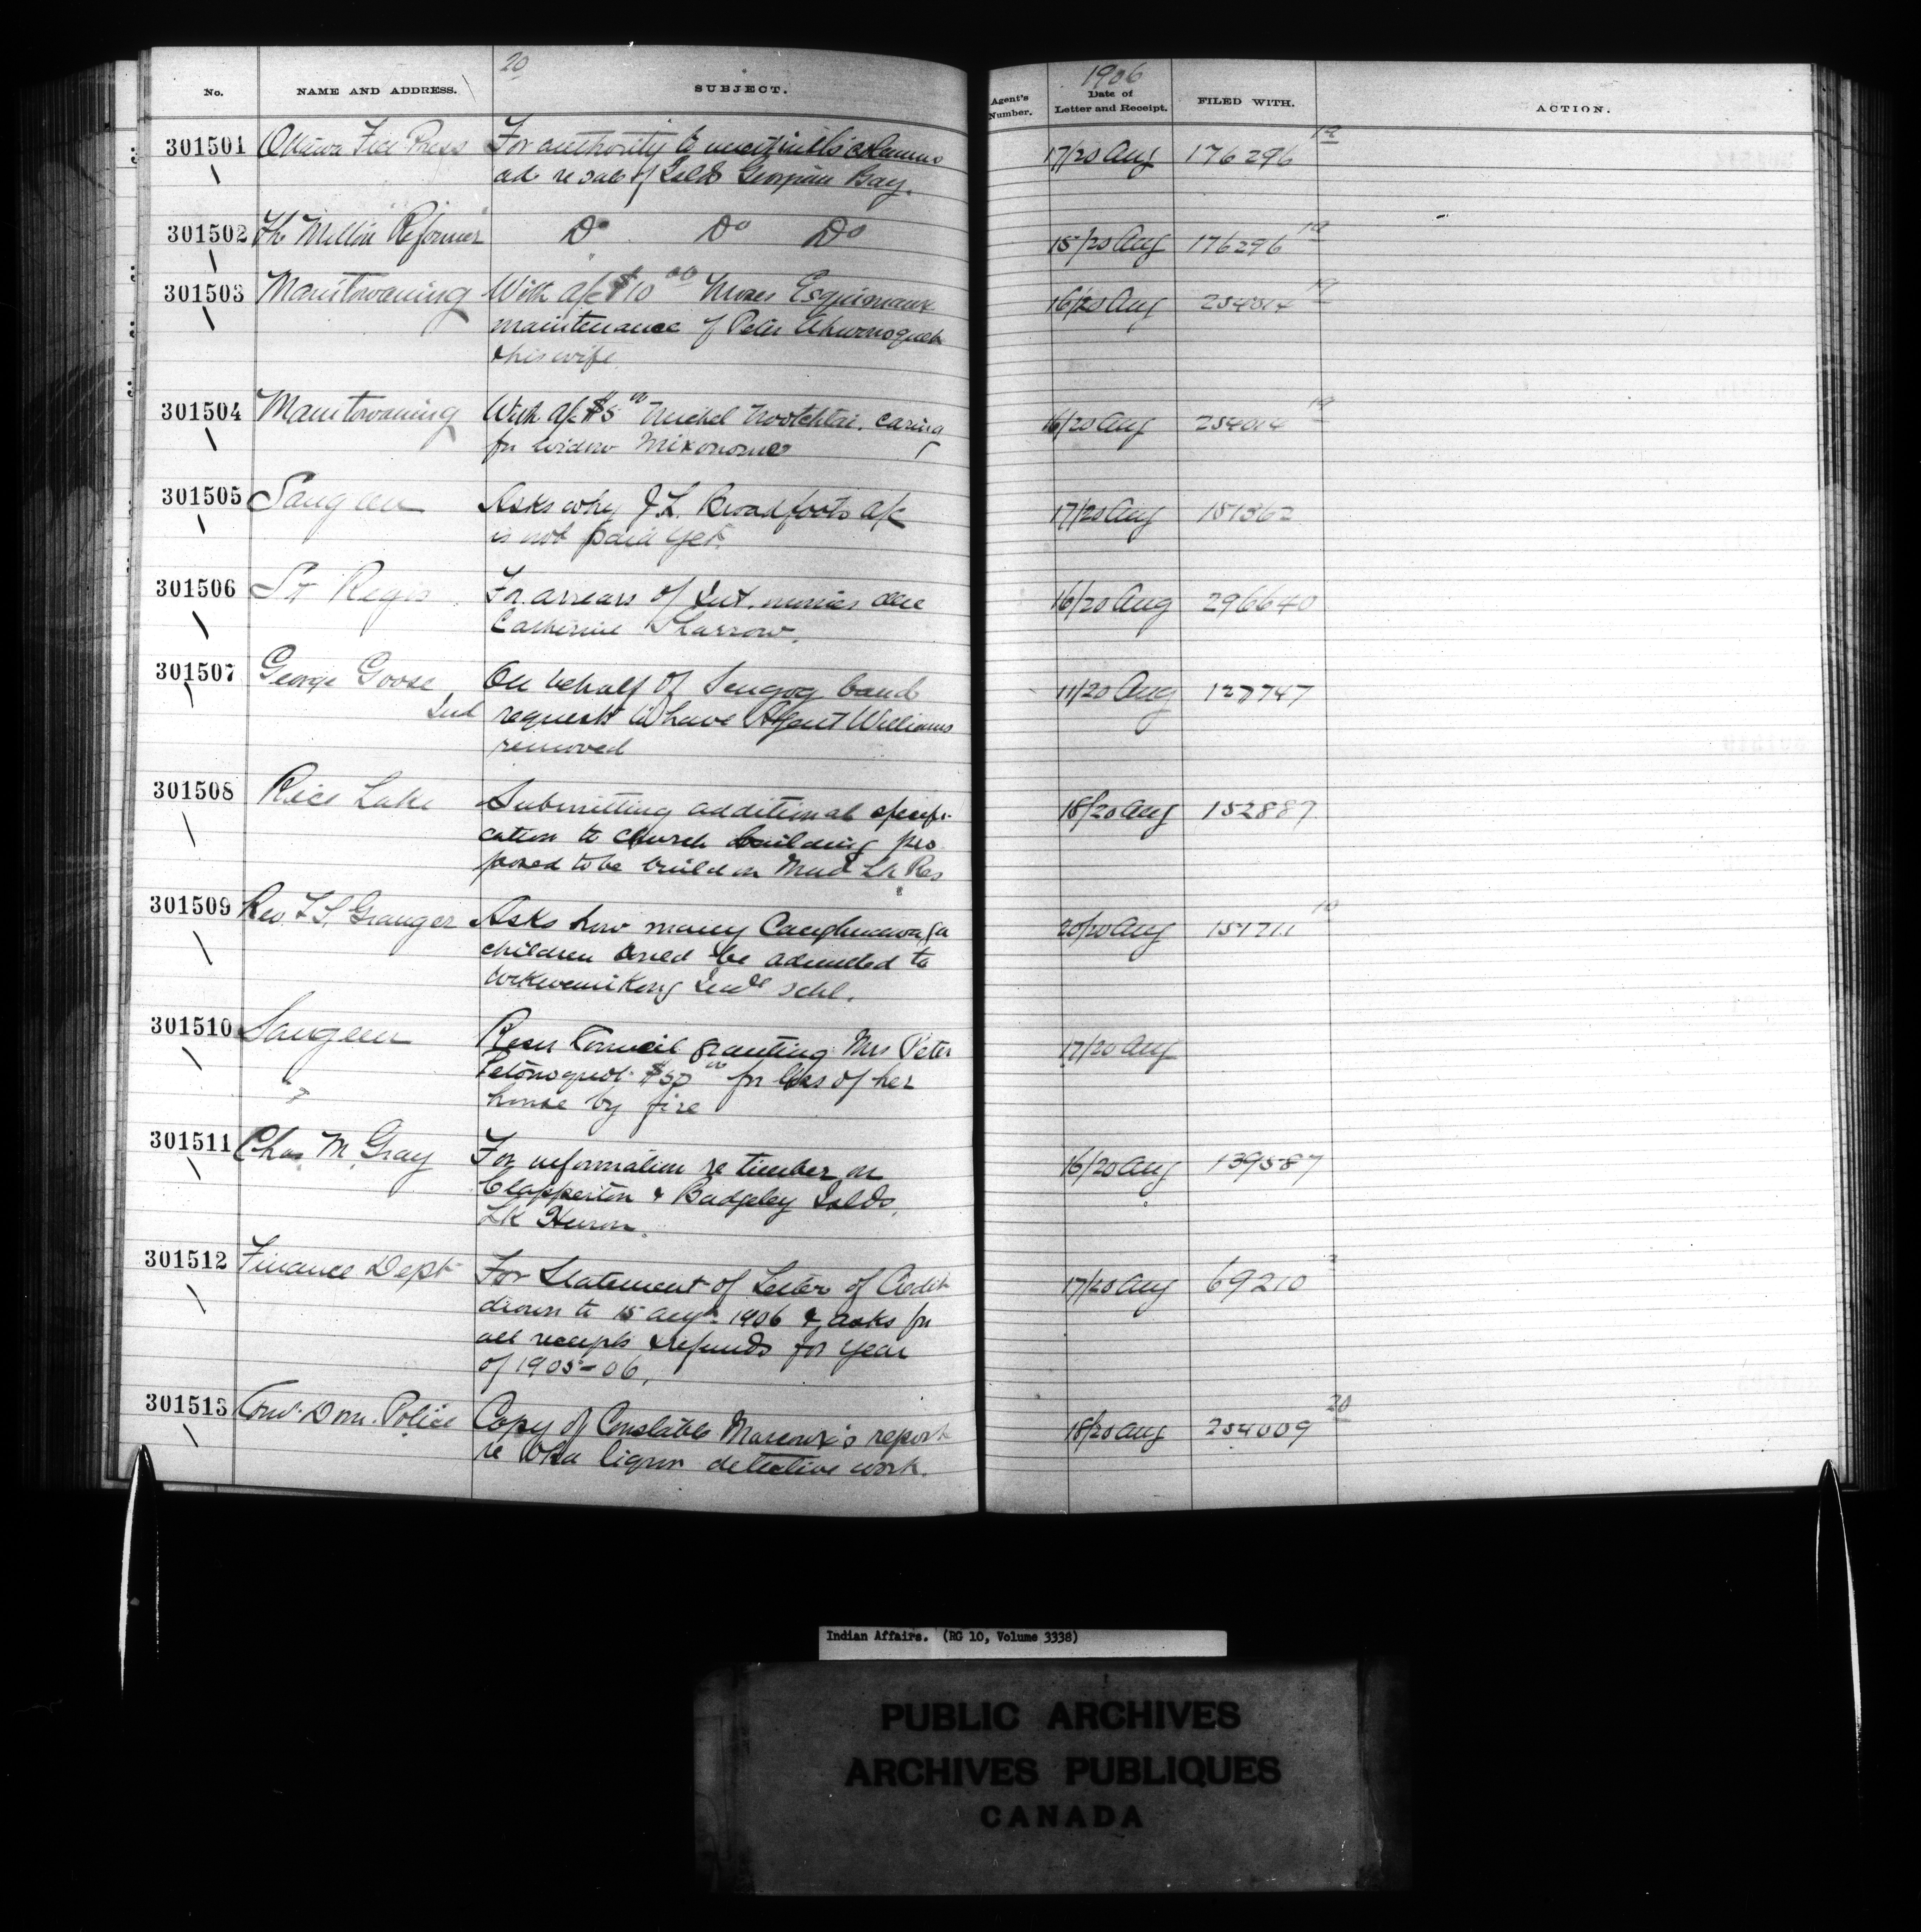 20
1906
No. NAME AND ADDRESS. SUBJECT. Agent's Number. Date of Letter and Receipt. FILED WITH. ACTION.
301501 Ottawa Free Press For authority to insert in its columns 17/20 Aug 176296 19
ad. re sale of Islds Georgian Bay.
301502 The Milton Reformer Do Do Do 15/20 Aug 176296 19
301503 Manitowaning With a/c $10 00 Moses Esquimaux 16/20 Aug 254014 19
maintenance of Peter
& his wife.
301504 Manitowaning With a/c $5 00 Michel caring 16/20 Aug 254014 19
for widow
301505 Saugeen Asks why J.L. Broadfoots a/c 17/20 Aug 151362
is not paid yet.
301506 St Regis For arrears of Int. monies due 16/20 Aug 296640
Catherine Sharrow.
301507 George Goose On behalf of Scugog band 11/20 Aug 127747
Ind requests to have Agent Williams
removed
301508 Rice Lake Submitting additional specifi- 18/20 Aug 152887
cation to church building pro
posed to be build on Mud Lk Res
301509 Rev Granger Asks how many Caughnawaga 20/20 Aug 10
children be admitted to
Wikwemikong Indl schl.
301510 Saugeen Council granting Mrs Peter 17/20 Aug
$50 00 for loss of her
" house by fire
301511 Chas. M. Gray For information re timber on 16/20 Aug 139587
Clapperton & Badgeley Islds,
Lk Huron.
301512 Finance Dept For Statement of Letter of Credit 17/20 Aug 69210
drawn to 15 Augt 1906 & asks for
all receipts & refunds for year
of 1905-06.
301513 Com. Dom. Police Copy of Constable Marcoux's report 18/20 Aug 254009 20
re Oka liquor detective work.
Indian Affairs. (RG 10, Volume 3338)
PUBLIC ARCHIVES
ARCHIVES PUBLIQUES
CANADA